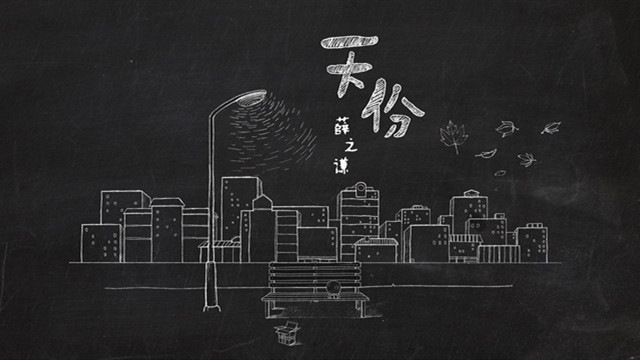 天份
薛之谦